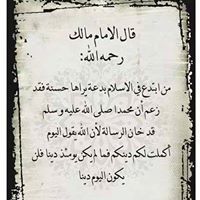 قال الامام مالك
رحمه الله:
من ابتدع في الاسلام بدعة يراها حسنة فقد
زعم أن محمدا صلى الله عليه وسلم
قد خان الرسالة لأن الله يقول اليوم
أكملت لكم دينكم فما لم يكن يومئذ دينا فلن
يكون اليوم دينا